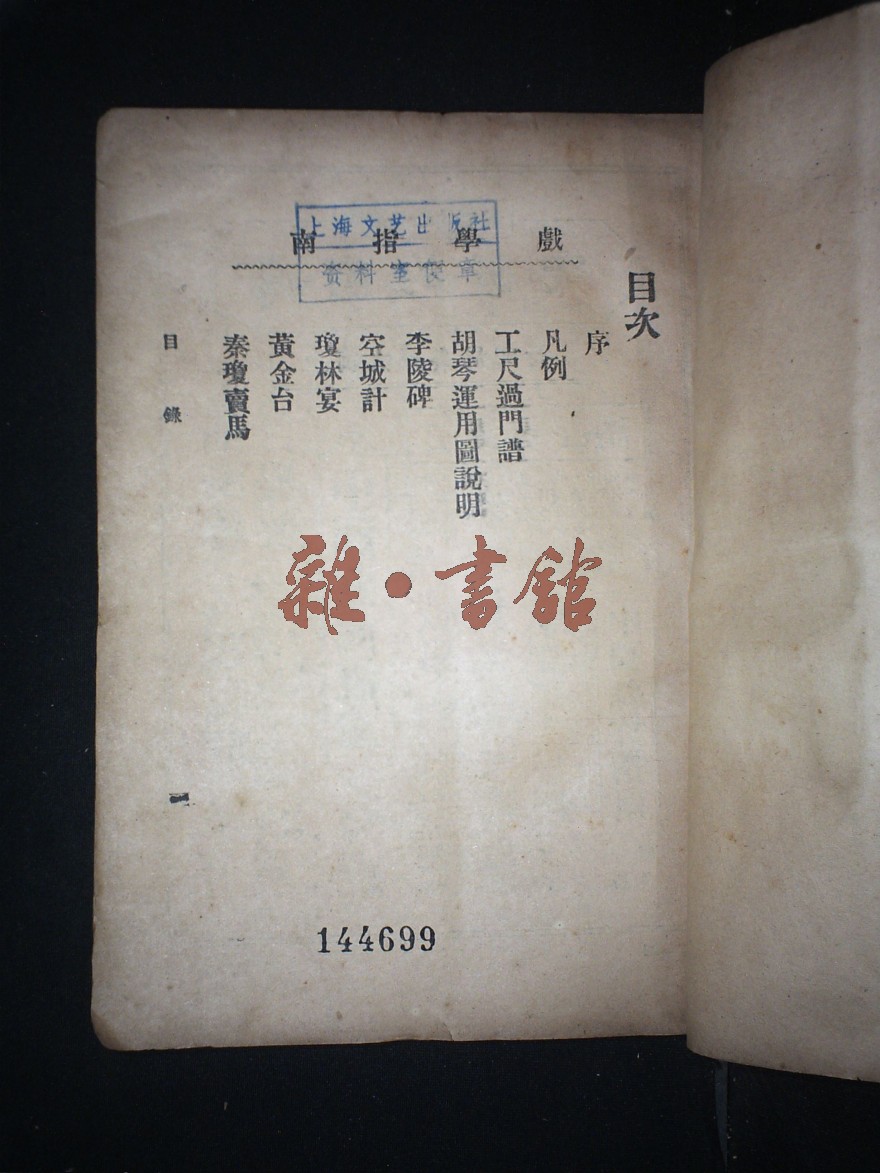 上海文艺出版社
戲學指南
资料室图章
目次
序
凡例
工尺過門譜
胡琴運用圖說明
李陵碑
空城計
瓊林宴
黃金台
秦瓊賣馬
目錄
一
雜·書館
144699